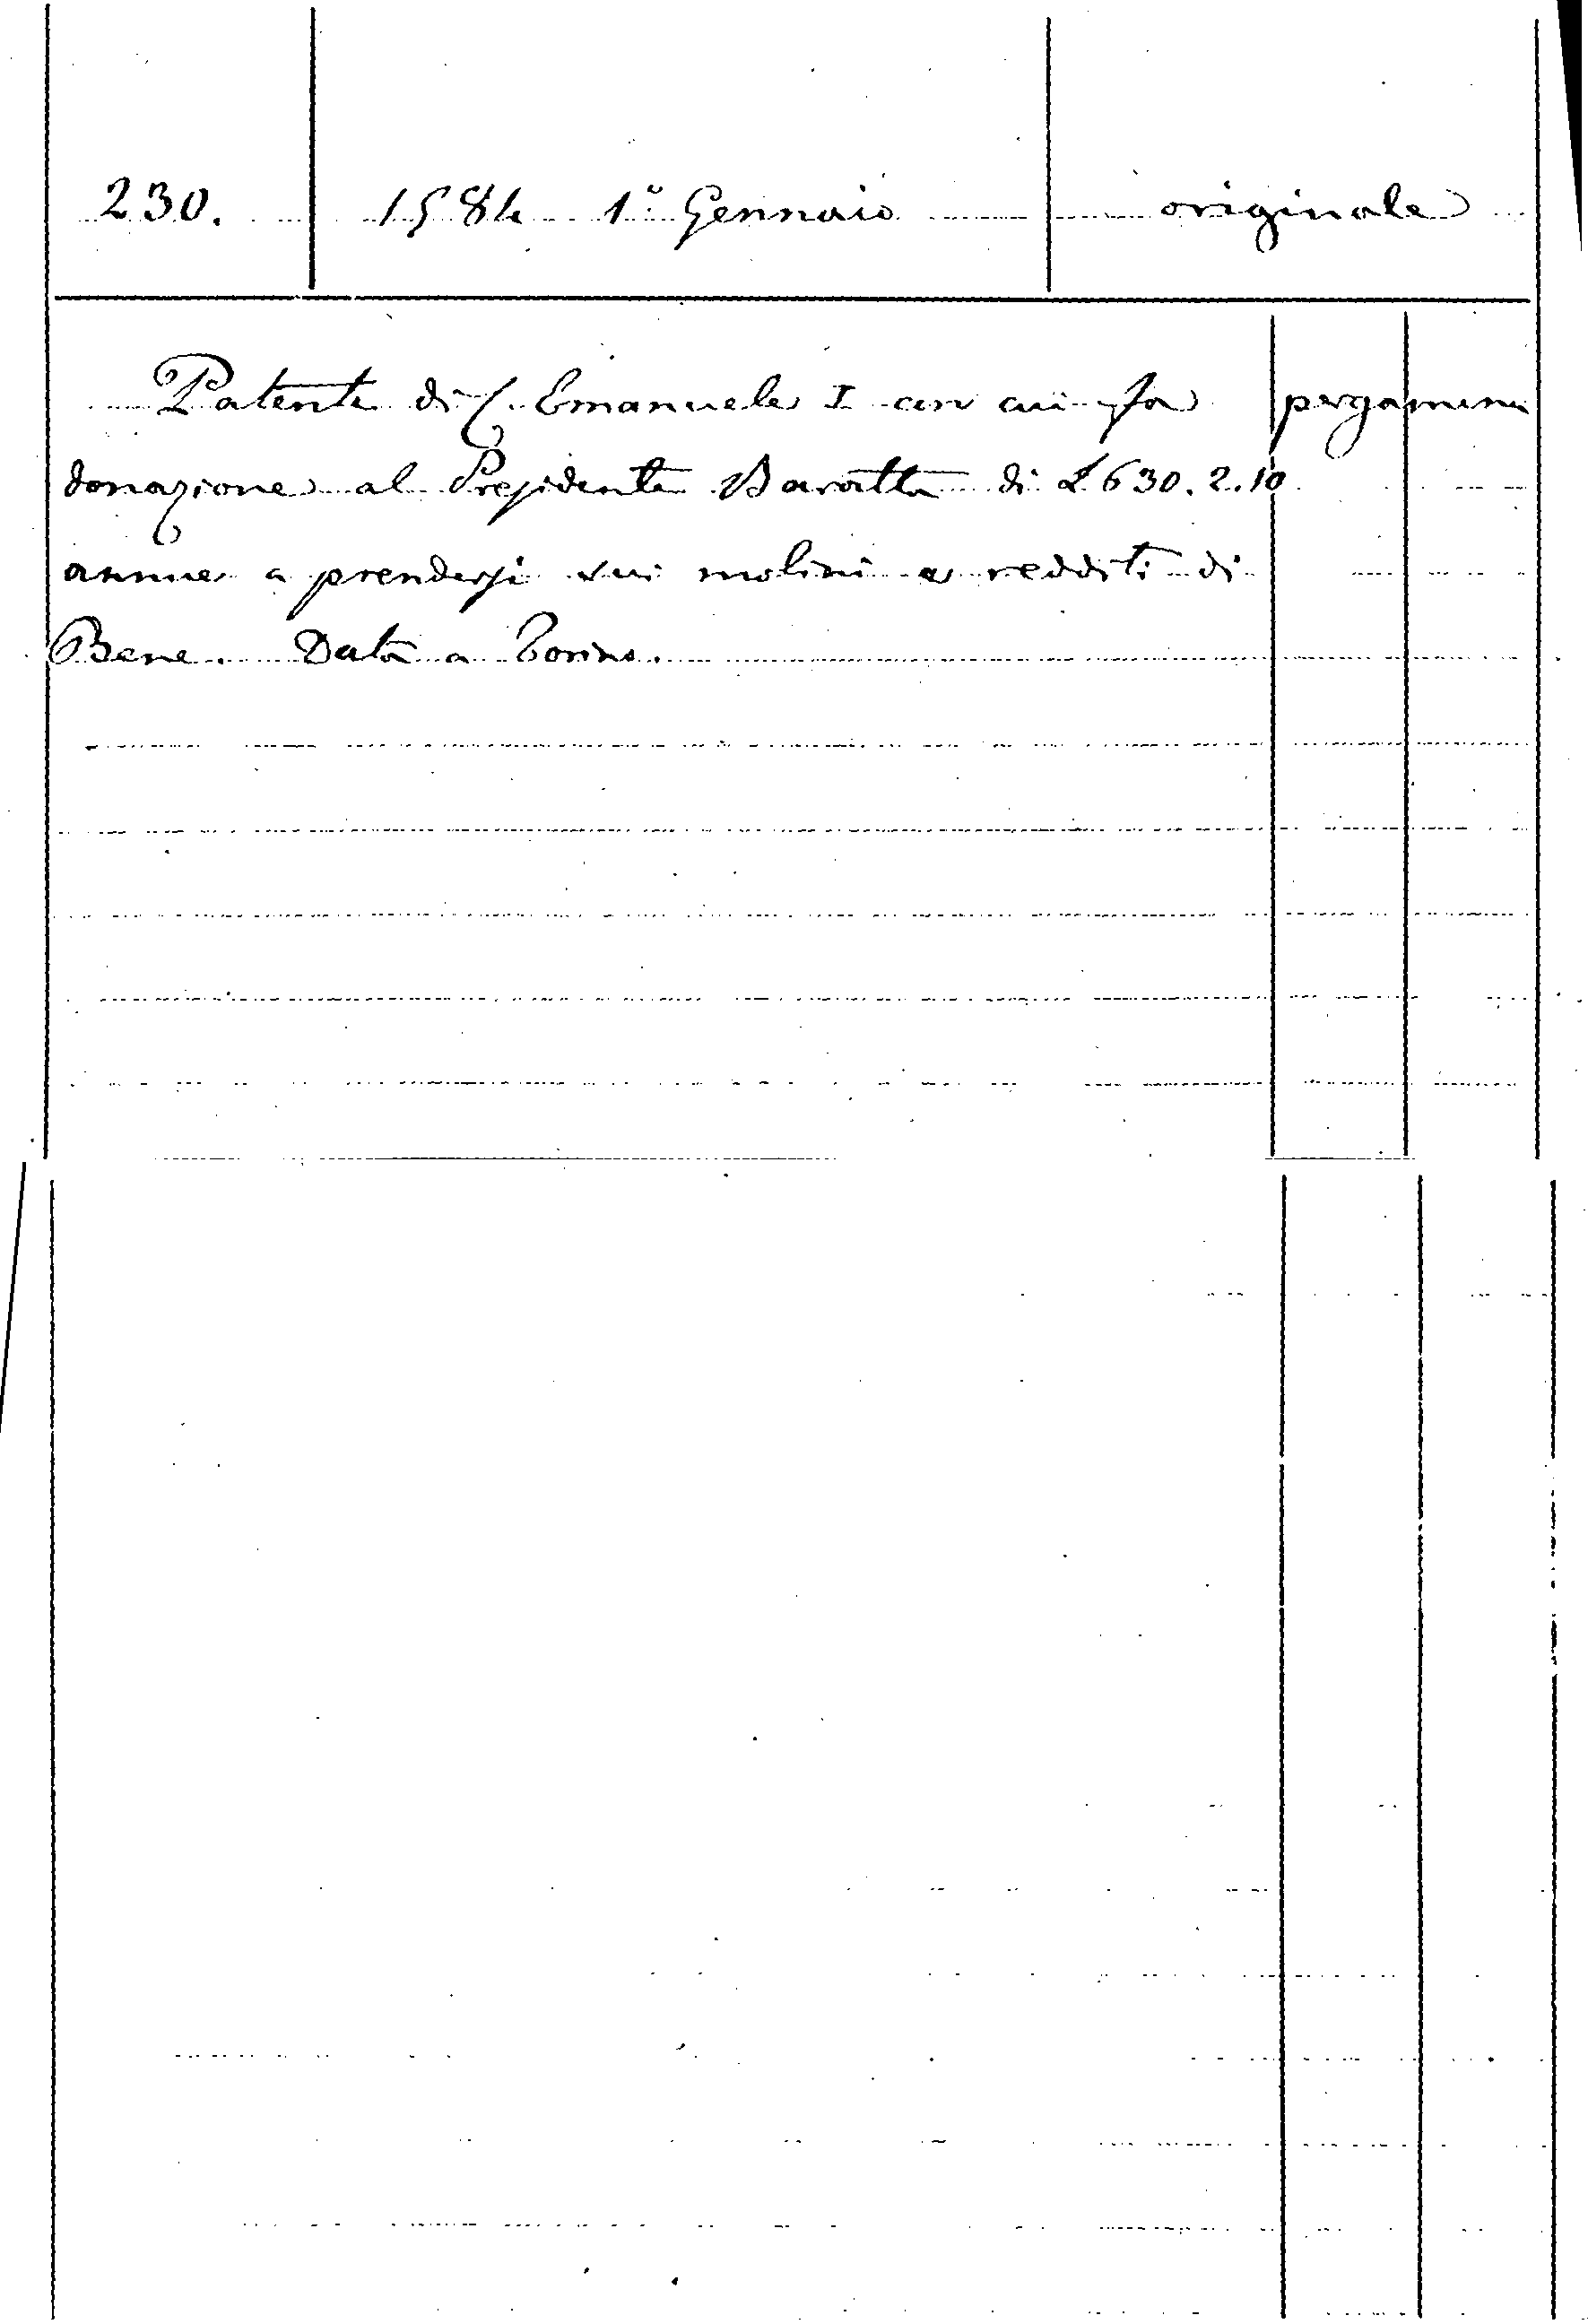 230. 1584 1° Gennaio originale
Patente di C. Emanuele I con cui fa pergamena
donazione al Presidente Baratta di L 630.2.10
annue a prendersi sui molini e redditi di
Bene. Data a Torino.